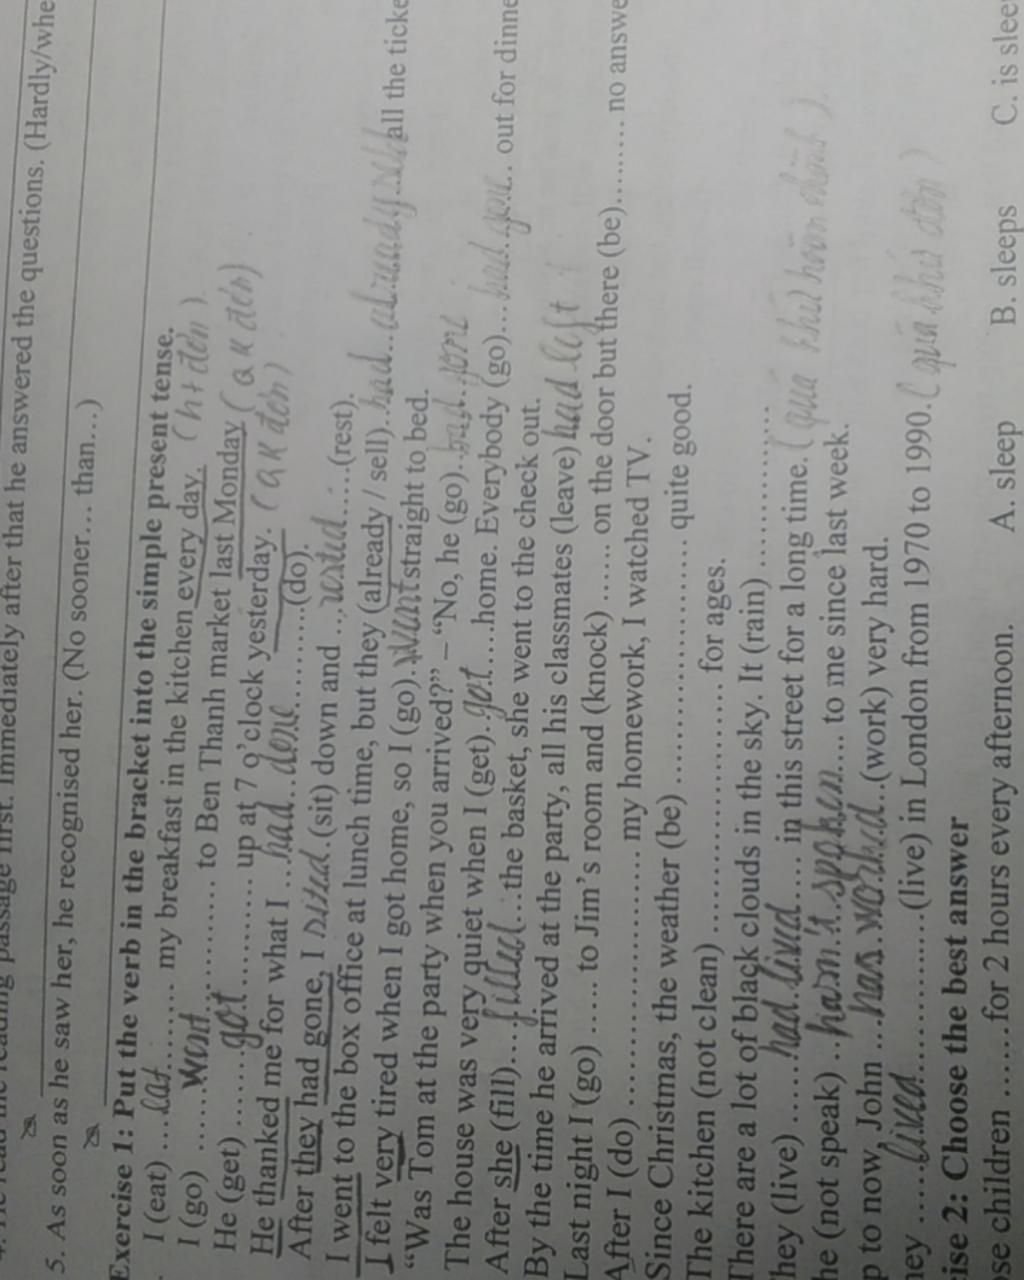 passage first. Immediately after that he answered the questions. (Hardly/whe
5. As soon as he saw her, he recognised her. (No sooner… than…)
Exercise 1: Put the verb in the bracket into the simple present tense.
I (eat) ....eat........ my breakfast in the kitchen every day. (ht đơn)
I (go) ......went.......... to Ben Thanh market last Monday (qk đơn)
He (get) .......got............ up at 7 o'clock yesterday. (qk đơn)
He thanked me for what I ...had...done............(do).
After they had gone, I sited..(sit) down and ...rested......(rest).
I went to the box office at lunch time, but they (already / sell)..had...already...sold all the ticke
I felt very tired when I got home, so I (go)..went straight to bed.
"Was Tom at the party when you arrived?" – "No, he (go)..had...gone
The house was very quiet when I (get)..got.....home. Everybody (go)...had...gone... out for dinne
After she (fill)....filled....the basket, she went to the check out.
By the time he arrived at the party, all his classmates (leave) had left
Last night I (go) ..... to Jim's room and (knock) ...... on the door but there (be)......... no answe
After I (do) .............................. my homework, I watched TV.
Since Christmas, the weather (be) .............................. quite good.
The kitchen (not clean) .............................. for ages.
There are a lot of black clouds in the sky. It (rain) ....................
hey (live) ......had lived...... in this street for a long time. (quá khứ hoàn thành)
he (not speak) ..hasn't spoken.... to me since last week.
p to now, John ...has worked...(work) very hard.
hey .....lived....................(live) in London from 1970 to 1990. (quá khứ đơn)
ise 2: Choose the best answer
se children ......for 2 hours every afternoon.
A. sleep B. sleeps C. is slee